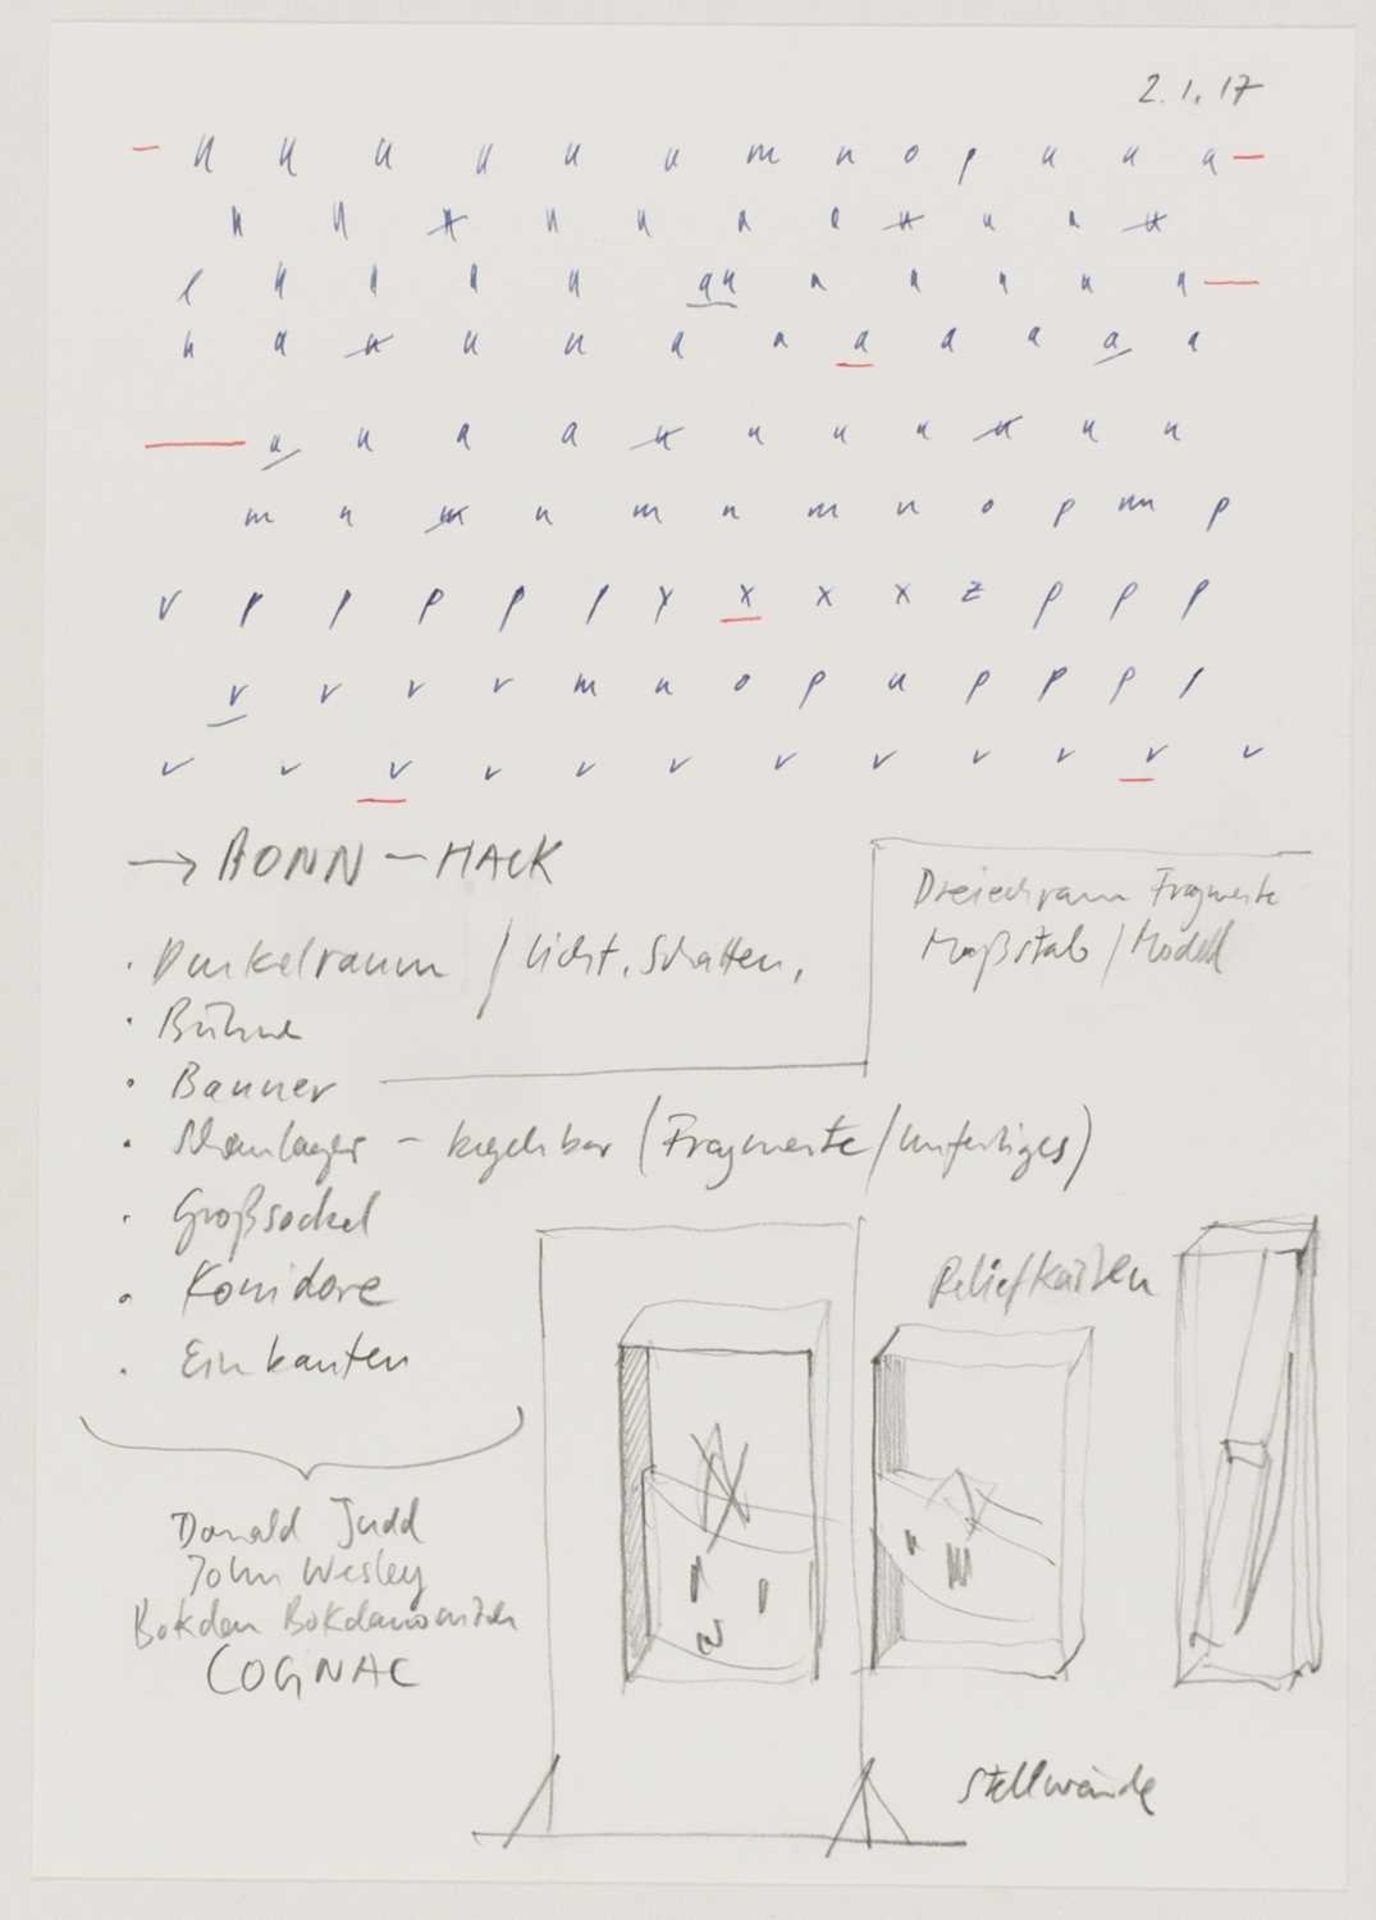 2.1.17
u u u u u u m n o p u u u
u u u u u a l u u u u
l u l a u au a a u u a
u a u u u a a a a a a a
u u a a u u u u u u u
m n m n m n m n o p m p
v p p p p p y x x x z p p p
v v v v m n o p u p p p p
v v v v v v v v v v v v
→ BONN – HACK
Dreieckraum Fragmente
Maßstab / Modell
· Dunkelraum / Licht, Schatten,
· Bühne
· Banner
· Schaulager – begehbar (Fragmente/Unfertiges)
· Großsockel
· Korridore
· Einkanten
Reliefkästen
Donald Judd
John Wesley
Bokdan Bokdanowitch
COGNAC
Stellwände